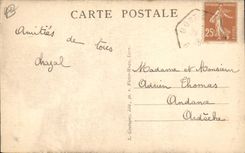 CARTE POSTALE
Amitiés de tous
Chazal
Madame et Monsieur
Adrien Thomas
Andance
Ardèche
25c